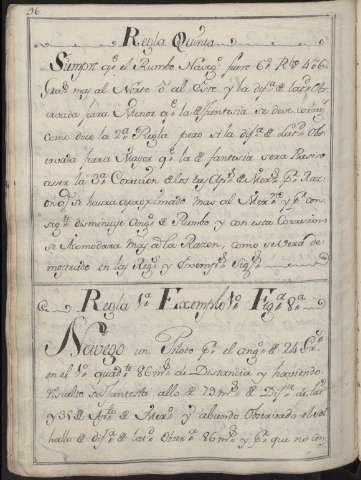 96
Regla Quinta
Siempre q.e el Rumbo Naveg.do fuere 6.o R.bo 4 o 6
Grad.s mas al Norte ô al Sur y la dif.a de lat.d Ob
servada fuera Menor q.e la de fantasia se deve corregir
como dice la 2.a Regla pero si la dif.a de lat.d Ob
servada fuera Mayor q.e la de fantasia sera Preciso
aser la 3.a Corecion
se haura aproximado mas al Mer.no y p.r con
sig.te disminuye Ang.o de Rumbo y con esta Correcion
se Acomodara mas a la Razon, como se verá de
mostrado en las Reg.s y Exemp.s Sig.tes
Regla 1.a Exemplo 1.o Fig.a 8.a
Navego un Piloto p.r el ang.o de 24 Gr.s
en el 1.o quad.te 86 m.s de Distancia y haviendo
resuelto de fantasia allo de 79 m.s de Dif.a de lat.d
y 35 de Apar.to de Mer.no y abiendo Observado el Sol
hallo de dif.a de lat.d Observ.a 86 m.s y p.r que no con